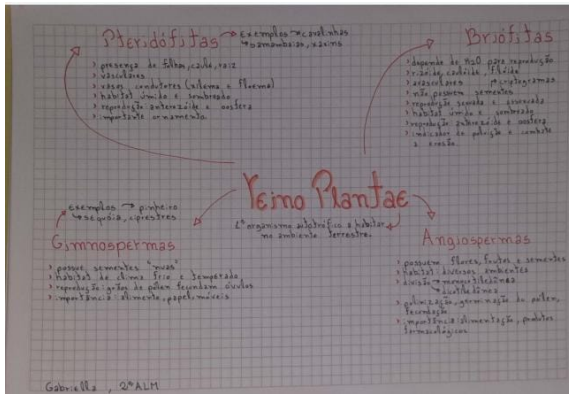 Pteridófitas → exemplos → cavalinhas
↳ samambaias, xaxins
> presença de folhas, caule, raiz
> vasculares
> vasos condutores (xilema e floema)
> habitat úmido e sombreado
> reprodução: anterozóide e oosfera
> importante: ornamenta.
Briófitas
> depende de H2O para reprodução
> rizóide, caulóide, filóide
> avasculares → criptógramas
> não possuem sementes
> reprodução sexuada e assexuada
> habitat úmido e sombreado
> reprodução: anterozóide e oosfera
> indicador de poluição e combate
a erosão.
Reino Plantae
1º organismo autotrófico a habitar
no ambiente terrestre.
exemplos → pinheiro
↳ sequóia, ciprestres
Gimnospermas
> possue sementes "nuas"
> habitat de clima frio e temperado
> reprodução: grãos de pólen fecundam óvulos
> importância: alimento, papel, móveis
Angiospermas
> possuem flores, frutos e sementes
> habitat: diversos ambientes
> divisão → monocotiledônea
↳ dicotiledônea
> polinização, germinação do pólen,
fecundação.
> importância: alimentação, produtos
farmacológicos
Gabriella, 2ºALM